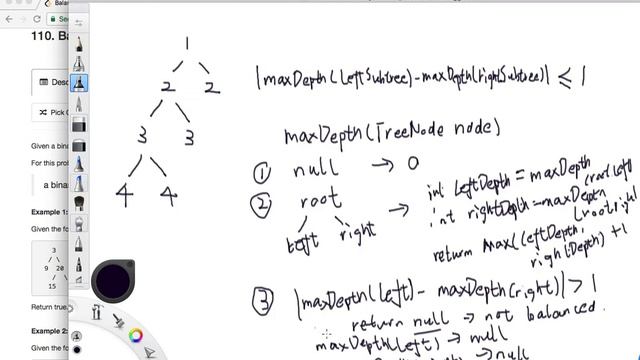 110. Ba
Desc
Pick O
Given a bina
For this prob
a bina
Example 1:
Given the fo
3
9 20
15
Return true.
Example 2:
Given the fo
1
2 2
3 3
4 4
|maxDepth(leftSubtree)-maxDepth(rightSubtree)| ≤ 1
maxDepth(TreeNode node)
① null → 0
② root
left right
→ int leftDepth = maxDepth(root.left)
int rightDepth = maxDepth(root.right)
return Max(leftDepth, rightDepth) + 1
③ |maxDepth(left) - maxDepth(right)| > 1
return null → not balanced.
maxDepth(left) → null
→ null